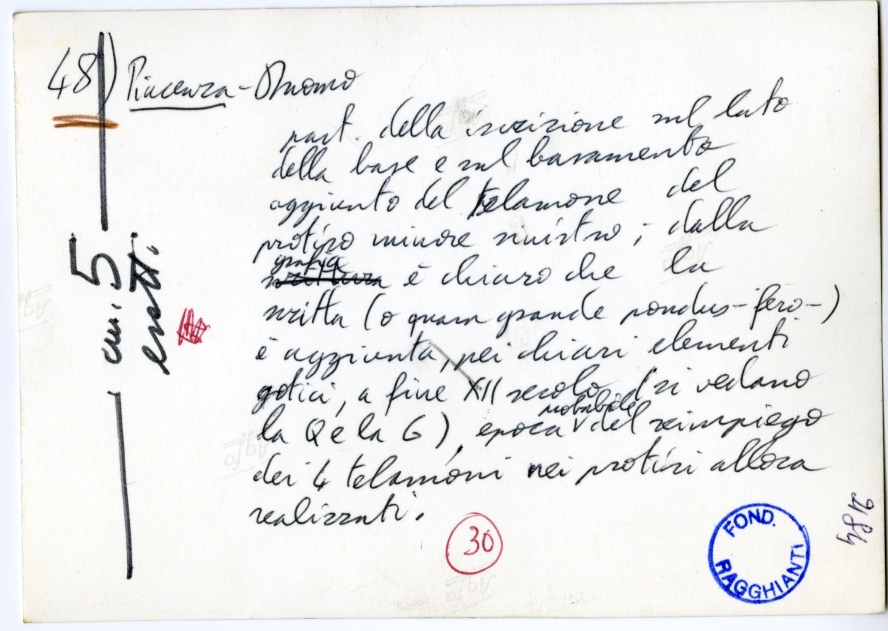 48) Piacenza - Duomo
part. della iscrizione sul lato
della base e sul basamento
aggiunto del telamone del
protiro minore sinistro; dalla
grafia
scrittura è chiaro che la
scritta (o quam grande pondus-fero-)
è aggiunta, pei chiari elementi
gotici, a fine XII secolo (si vedano
la Q e la G), epoca probabile del reimpiego
dei 4 telamoni nei protiri allora
realizzati.
cm. 5
esatt.
30
FOND.
RAGGHIANTI
2184